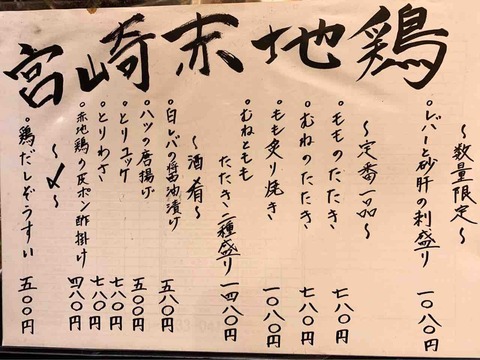 宮崎赤地鶏
〜数量限定〜
・レバーと砂肝の刺盛り 一〇八〇円
〜定番一品〜
・もものたたき 七八〇円
・むねのたたき 七八〇円
・もも炙り焼き 一〇八〇円
・むねともも
たたき二種盛り 一四八〇円
〜酒肴〜
・白レバの醤油漬け 五八〇円
・ハツの唐揚げ 五〇〇円
・とりユッケ 七八〇円
・とりわさ 七八〇円
・赤地鶏の皮ポン酢掛け 四八〇円
〜〆〜
・鶏だしぞうすい 五〇〇円